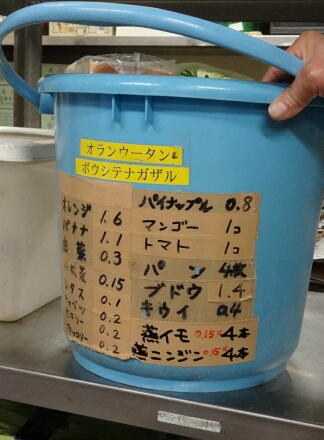 オランウータン&
ボウシテナガザル
オレンジ 1.6
バナナ 1.1
白菜 0.3
小松菜 0.15
レタス 0.1
キャベツ 0.2
セロリー 0.2
ブロッコリー 0.2
パイナップル 0.8
マンゴー 1コ
トマト 1コ
パン 4枚
ブドウ 1.4
キウイ 0.4
蒸イモ 0.15× 4本
蒸ニンジン 0.15 4本